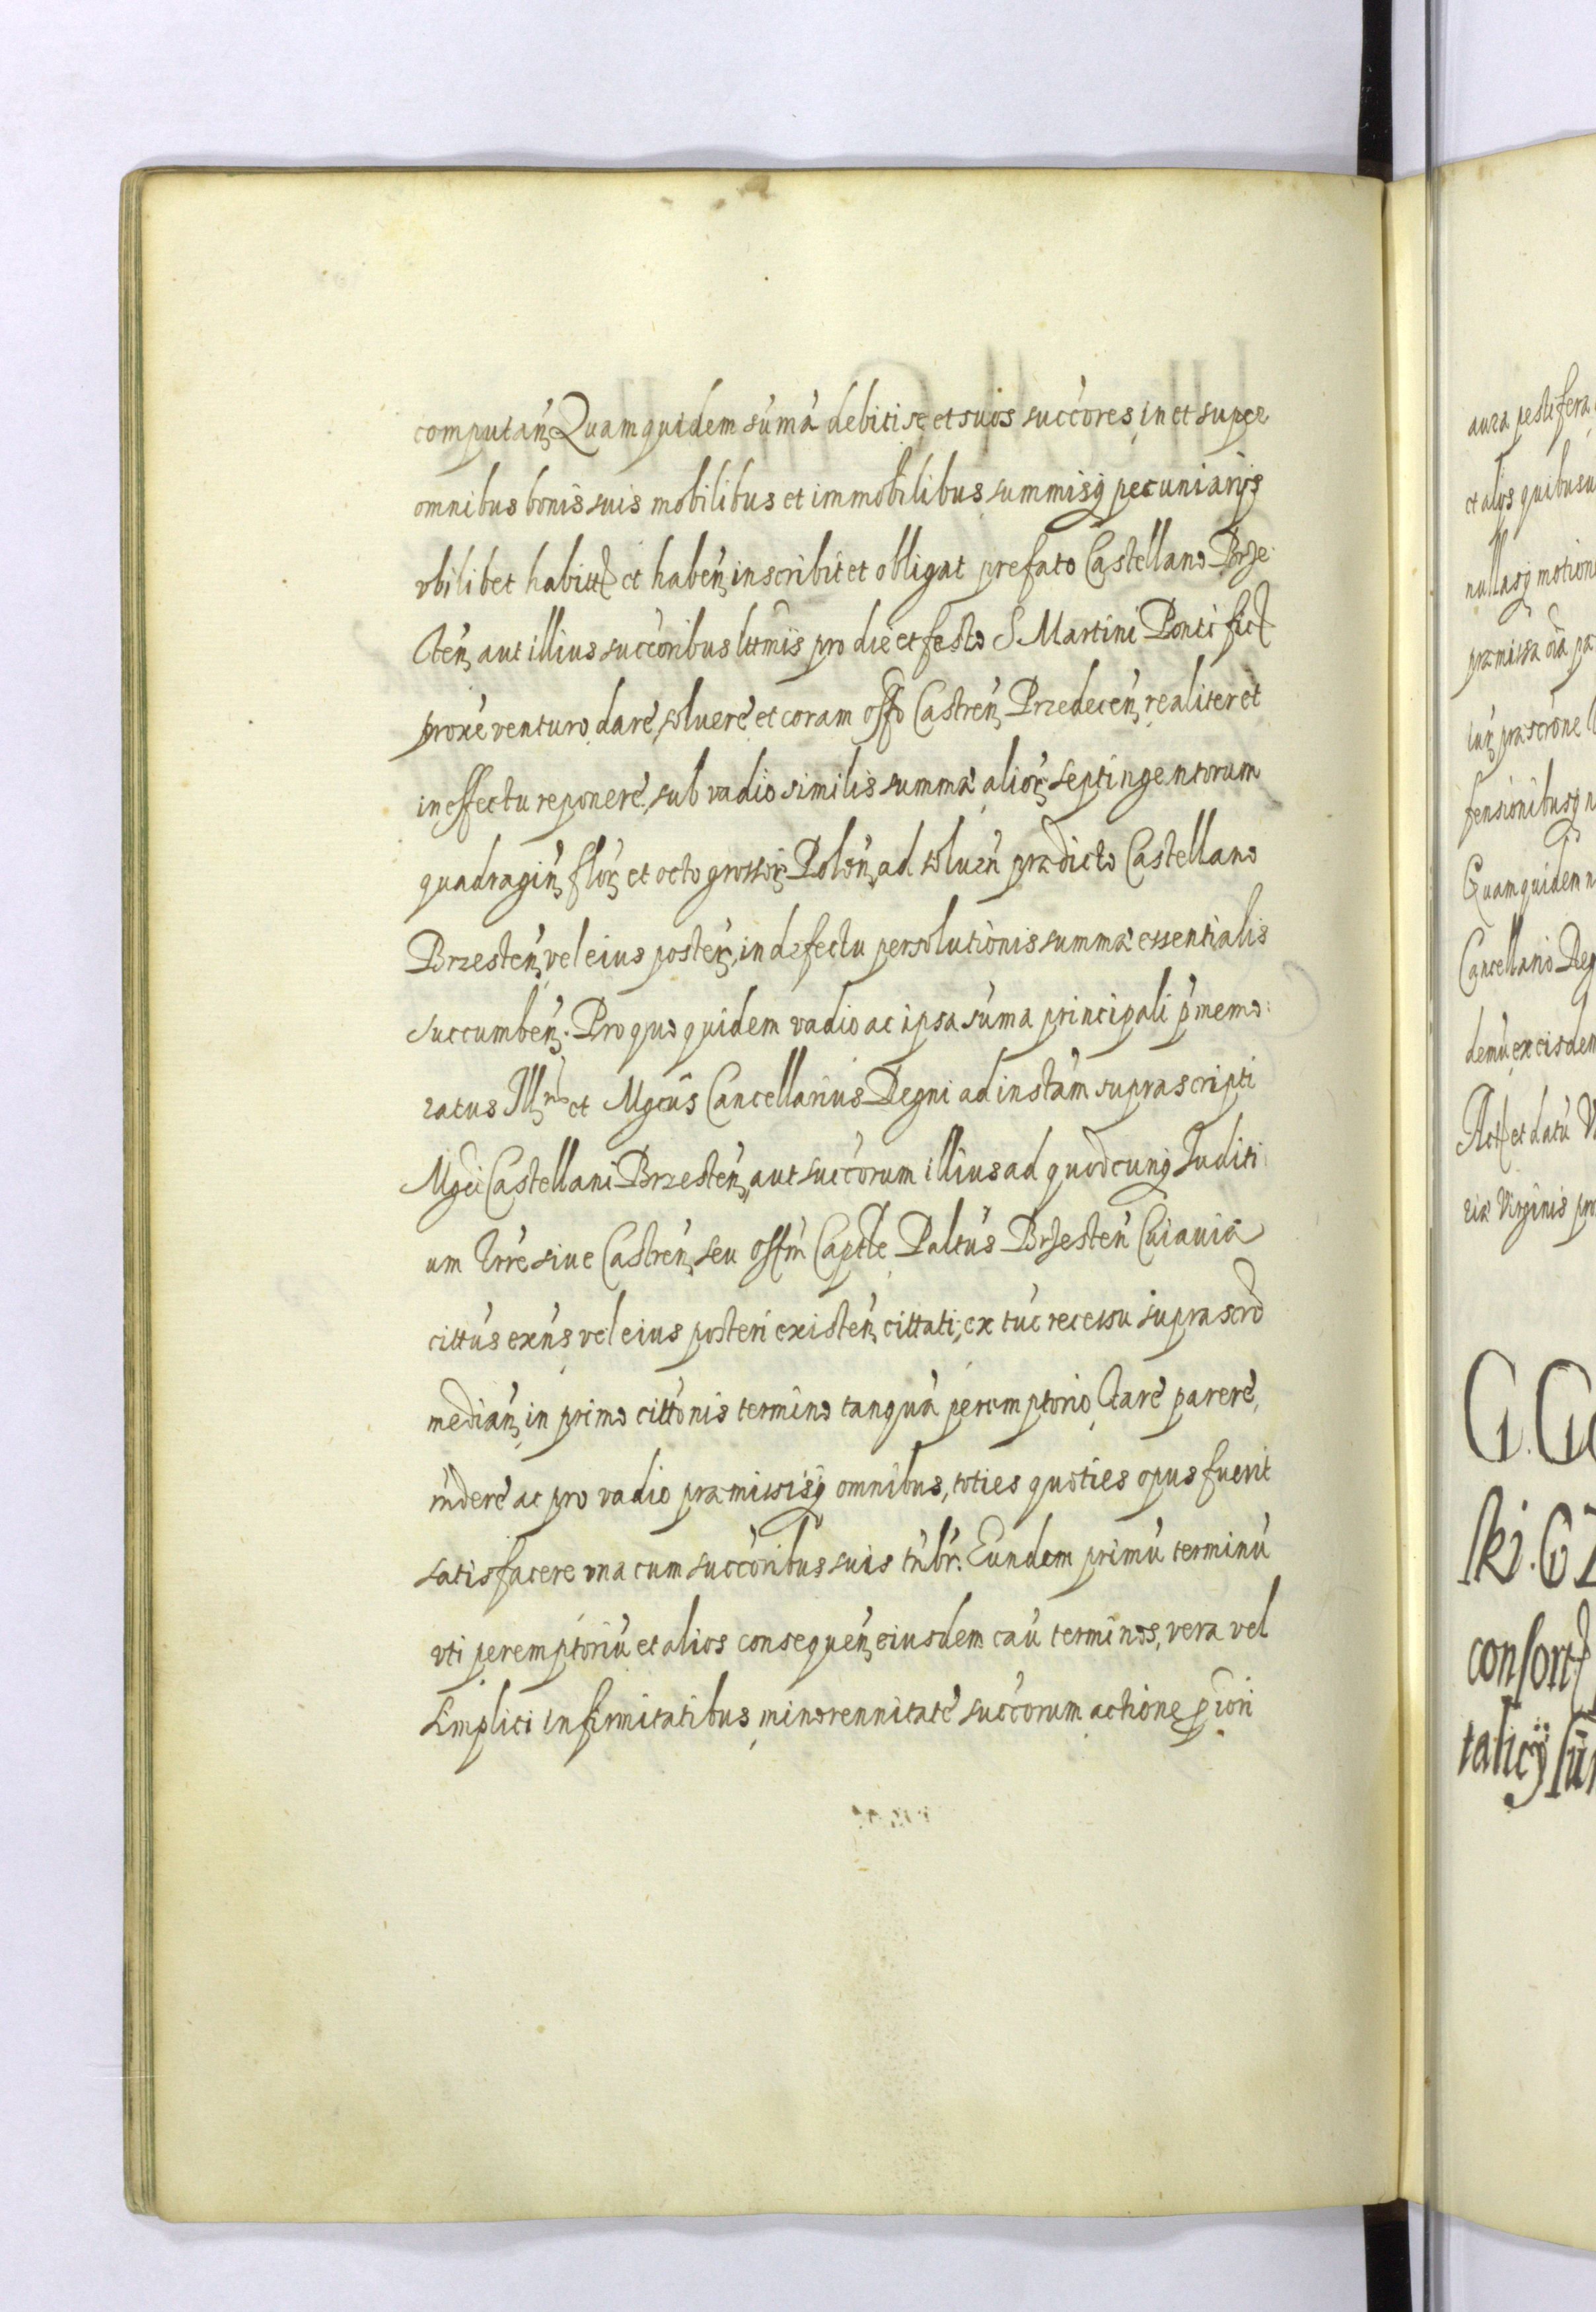 computan̄ Quamquidem sum̄a debiti se et suos succ̄ores in et super
omnibus bonis suis mobilibus et immobilibus summisq̃ pecuniarijs
vbilibet habitt et haben̄ inscribit et obligat prefato Castellano Brze
sten̄ aut illius succ̄oribus lttmis pro die et festo S Martini Pontific
proxe venturo, dare, soluere et coram offo Castren̄ Przedecen̄ realiter et
in effectu reponere, sub vadio similis summæ alior̄ septingentorum
quadragin̄ flor̄ et octo grossor̄ Polon̄, ad soluen̄ prædicto Castellano
Brzesten̄ vel eius poster̄, in defectu persolutionis summæ essentialis
succumben̄. Pro quo quidem vadio ac ipsa sum̄a principali p̄memo:
ratus Illris et Mgcus Cancellarius Regni ad instam̄ suprascripti
Mgci Castellani Brzesten̄, aut succ̄orum illius ad quodcunq̃ Juditi
um Trre siue Castren̄ seu offm̄ Captle Paltus Brzesten̄ Cuiauiæ
cittus exn̄s vel eius posteri existen̄ cittati, ex tuc recessu suprascrō
median̄, in primo cittonis termino tanquā peremptorio, stare parere,
rn̄dere ac pro vadio præmissisq̃ omnibus, toties quoties opus fuerit
satisfacere vna cum succ̄oribus suis tn̄br. Eundem primū terminū
vti peremptoriū et alios consequen̄ eiusdem caū terminos, vera vel
simplici infirmitatibus, minorennitate succ̄orum actione p̄iori
aura pestifera
et alijs quibusu
nullasq̃ motion
præmissa oīa pa
fensionibusq̃ n
Quamquidem n
Cancellario Reg
demū ex eisdem
Act et datū V
riæ Virginis pro
G. Go
ski. G
consort
talicÿ